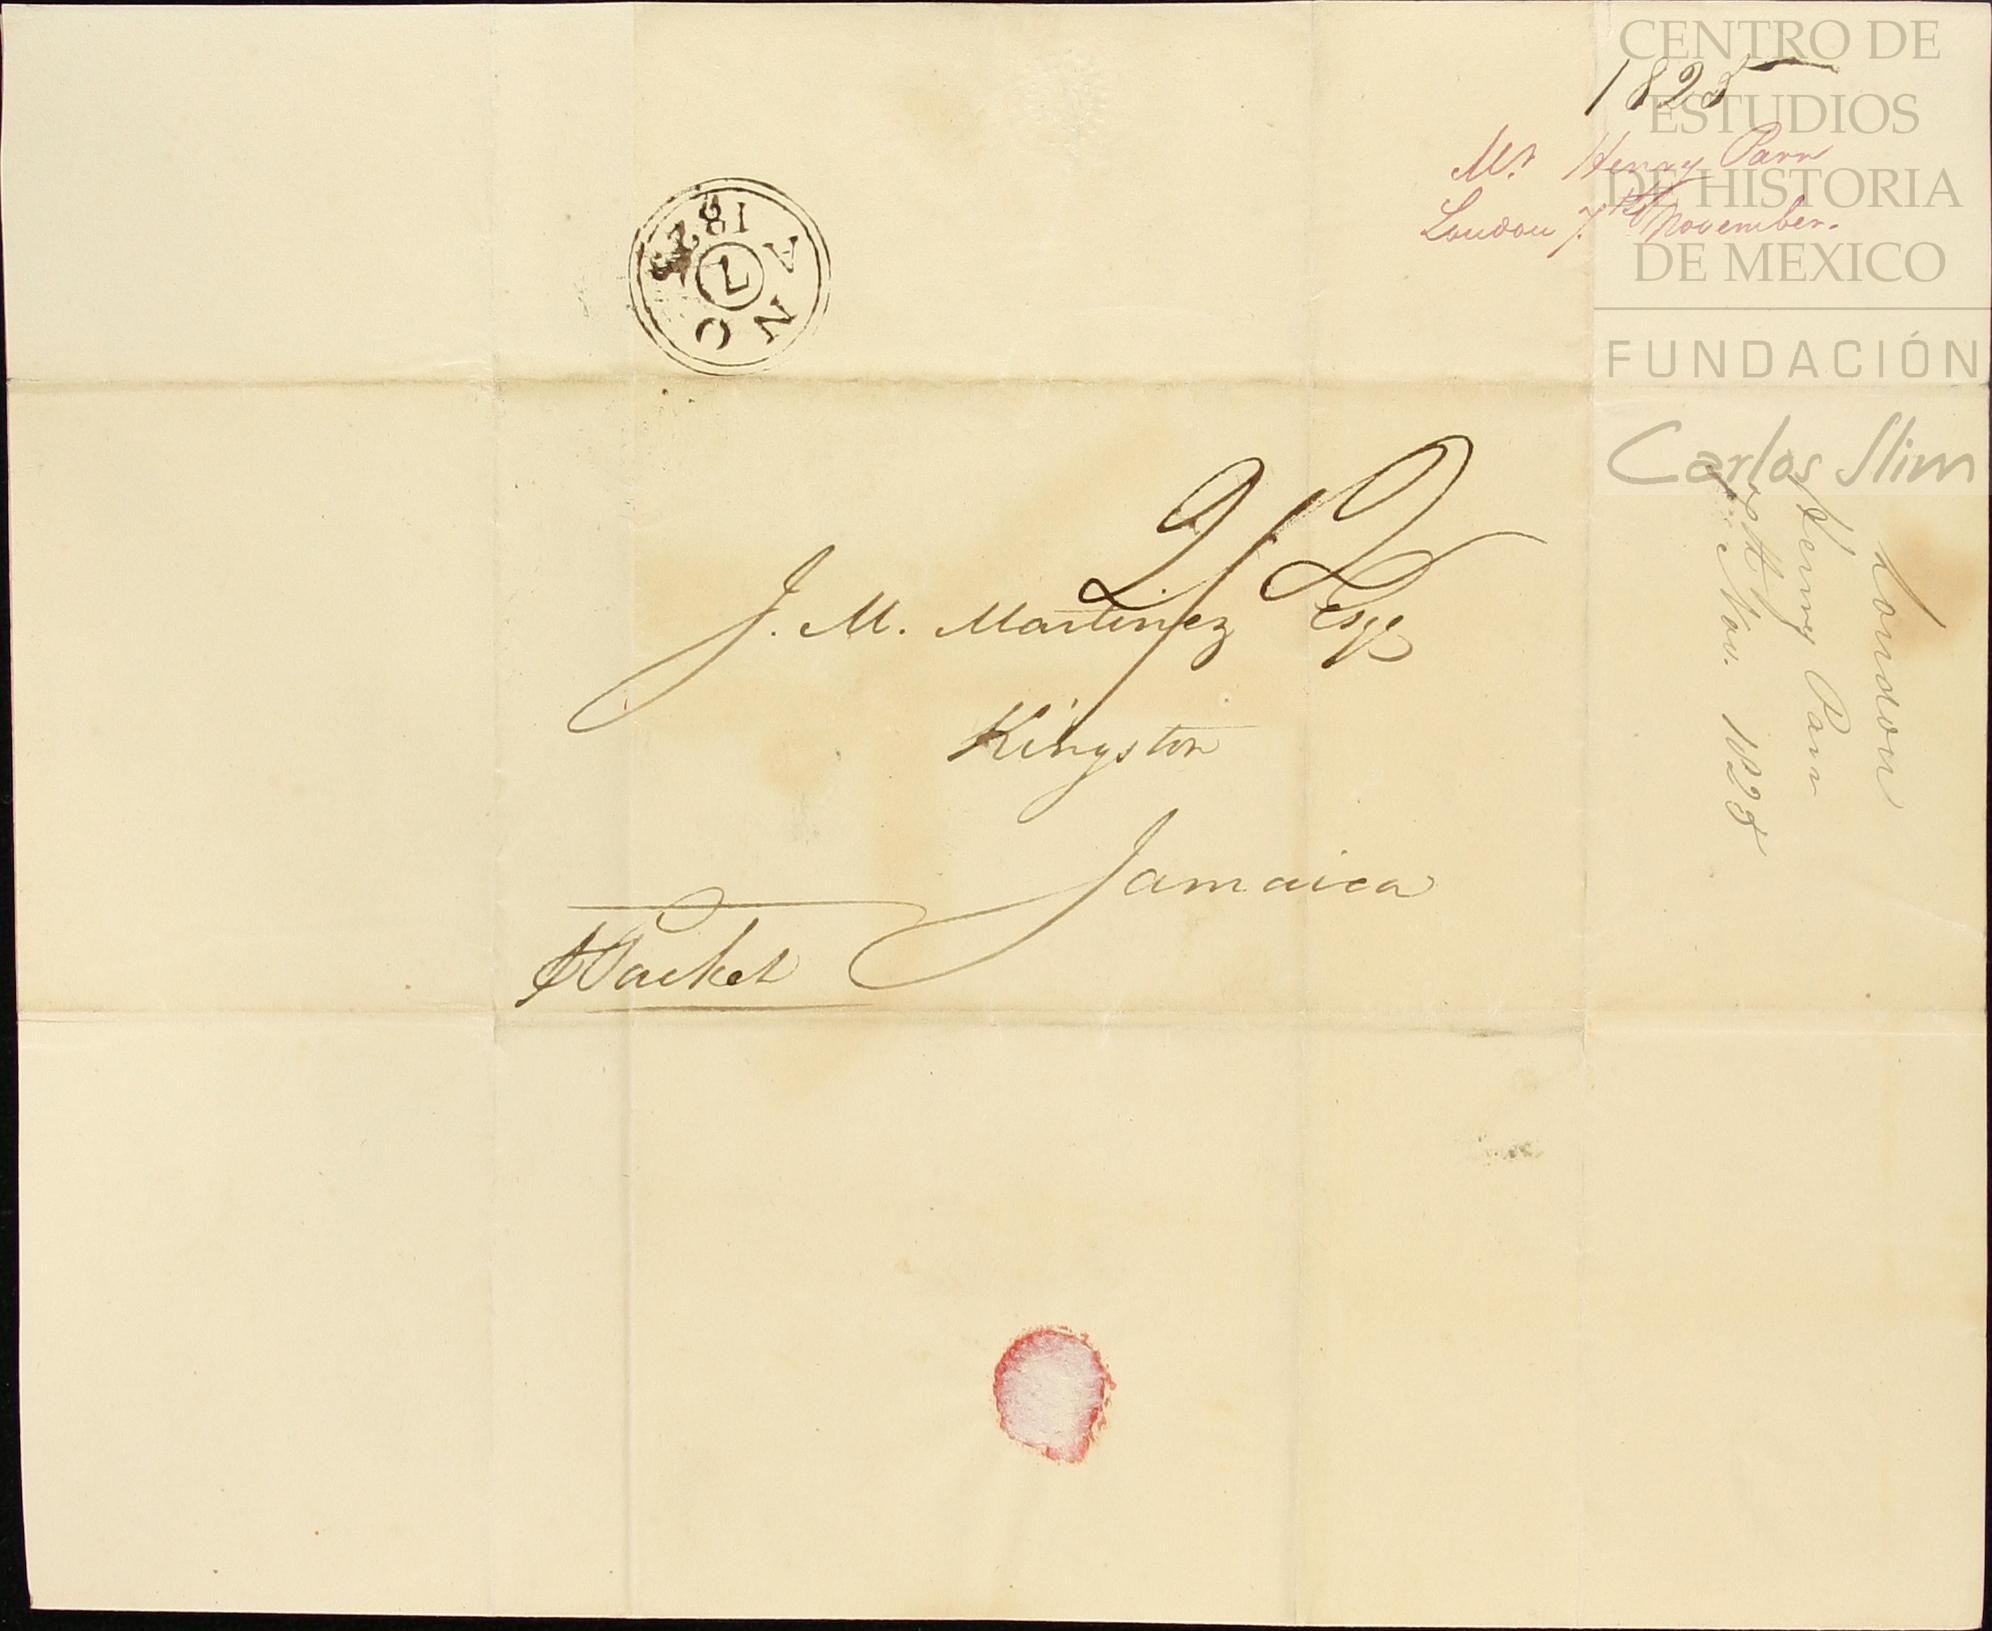 CENTRO DE
ESTUDIOS
DE HISTORIA
DE MEXICO
FUNDACIÓN
Carlos Slim
1825
Mr. Henry Parr
London 7th November.
A
NO
7
1825
2/2
J. M. Martinez Esqr
Kingston
Jamaica
Packet
London
Henry Parr
Nov. 1825